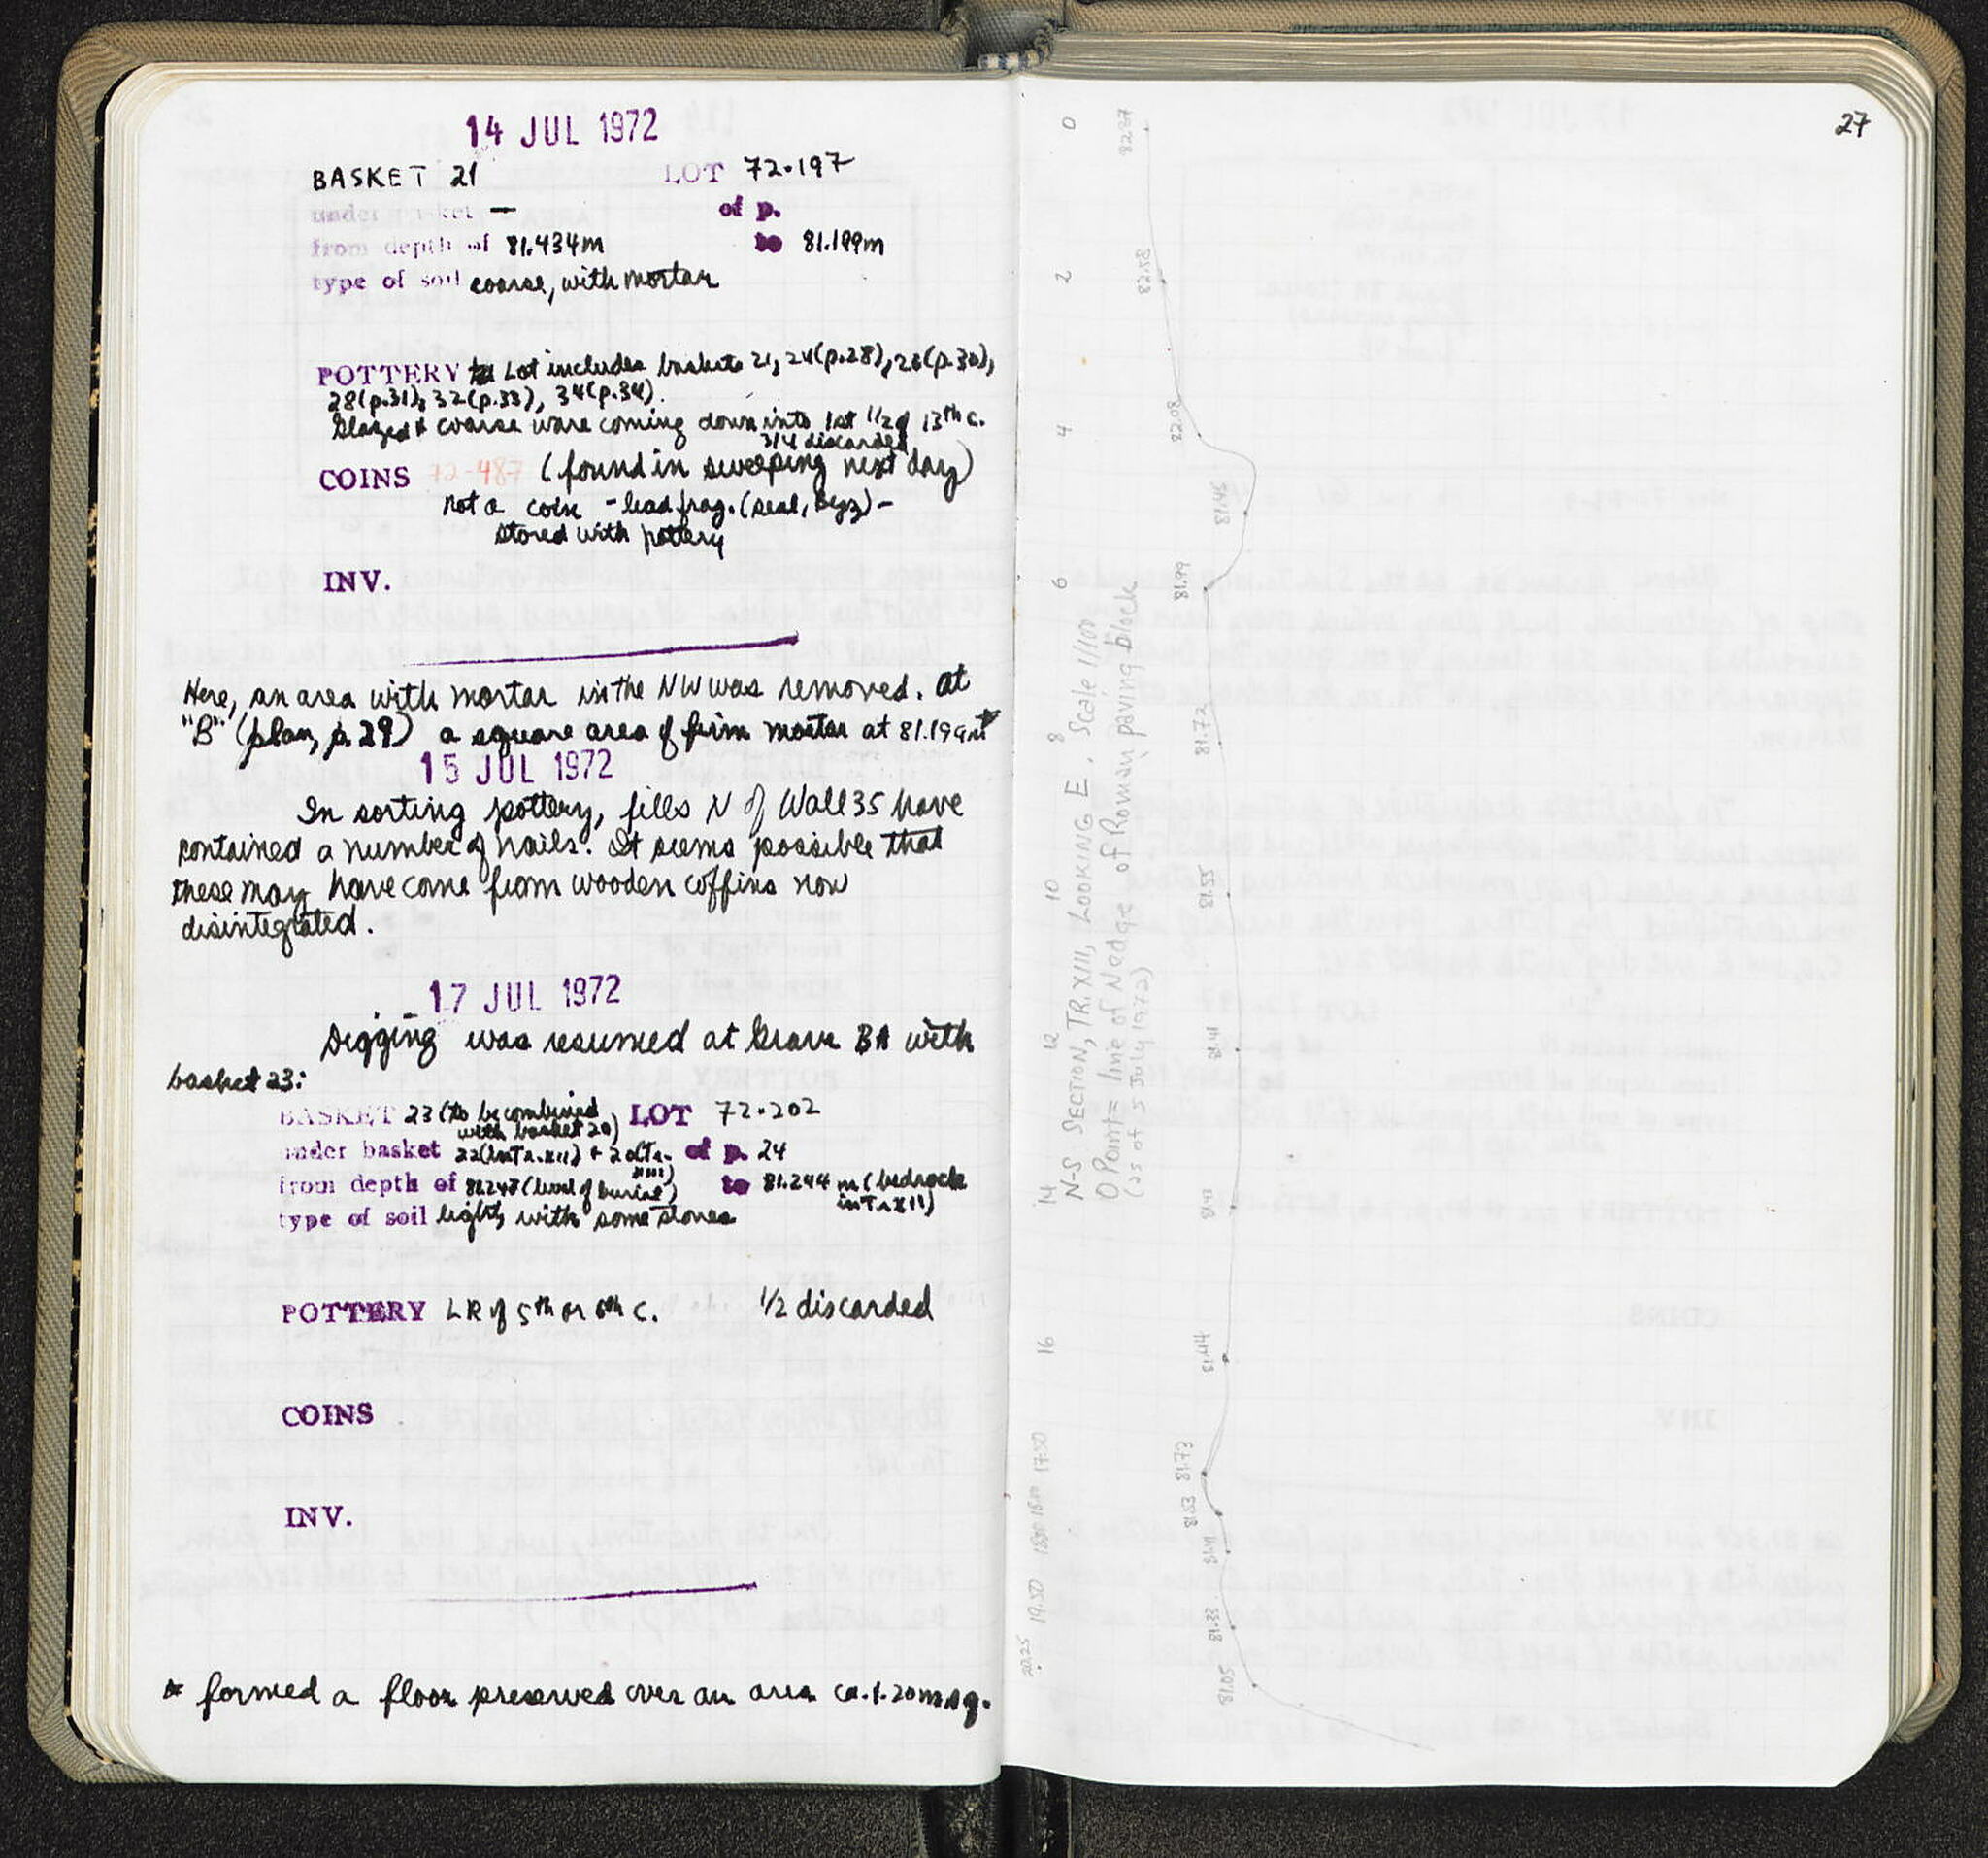 14 JUL 1972
BASKET 21 LOT 72.197
under basket — of p.
from depth of 81.434m to 81.199m
type of soil coarse, with mortar
POTTERY Lot includes baskets 21, 24(p.28), 26(p.30),
28(p.31), 32(p.33), 34(p.34).
Glazed & coarse ware coming down into 1st 1/2 of 13th c.
3/4 discarded
COINS 72-487 (found in sweeping next day)
not a coin - lead frag. (seal, Byz) -
stored with pottery
INV.
Here, an area with mortar in the NW was removed. At
"B" (plan, p. 29) a square area of firm mortar at 81.199m*
15 JUL 1972
In sorting pottery, fills N of Wall 35 have
contained a number of nails. It seems possible that
these may have come from wooden coffins now
disintegrated.
17 JUL 1972
Digging was resumed at Grave BA with
basket 23:
BASKET 23 (to be combined with basket 20) LOT 72.202
under basket 22(in Tr. XII) + 20(Tr. XIII) of p. 24
from depth of 81.248 (level of burial) to 81.244 m (bedrock in Tr XII)
type of soil light, with some stones
POTTERY LR of 5th or 6th c. 1/2 discarded
COINS
INV.
* formed a floor preserved over an area ca. 1.20m sq.
27
0 2 4 6 8 10 12 14 16 17.50 18.50 19.50 20.25
82.87 82.58 82.08 81.45 81.99 81.72 81.55 81.41 81.43 81.44 81.73 81.53 81.41 81.33 81.05
N-S SECTION, TR. XIII, LOOKING E. Scale 1/100
0 Point = line of N edge of Roman paving block
(as of 5 July 1972)